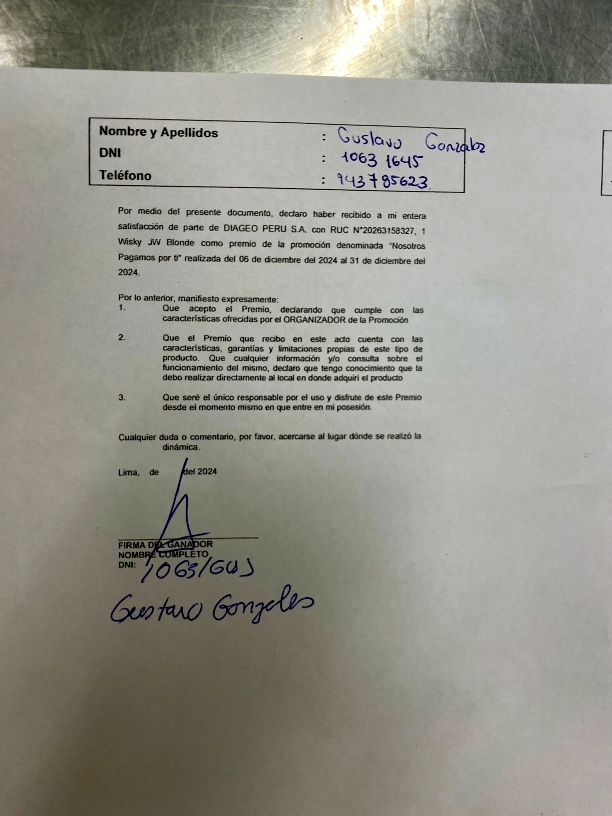 Nombre y Apellidos : Gustavo Gonzalez
DNI : 1063 1645
Teléfono : 943785623
Por medio del presente documento, declaro haber recibido a mi entera
satisfacción de parte de DIAGEO PERU S.A. con RUC N°20263158327, 1
Wisky JW Blonde como premio de la promoción denominada "Nosotros
Pagamos por ti" realizada del 06 de diciembre del 2024 al 31 de diciembre del
2024.
Por lo anterior, manifiesto expresamente:
1. Que acepto el Premio, declarando que cumple con las
características ofrecidas por el ORGANIZADOR de la Promoción
2. Que el Premio que recibo en este acto cuenta con las
características, garantías y limitaciones propias de este tipo de
producto. Que cualquier información y/o consulta sobre el
funcionamiento del mismo, declaro que tengo conocimiento que la
debo realizar directamente al local en donde adquirí el producto
3. Que seré el único responsable por el uso y disfrute de este Premio
desde el momento mismo en que entre en mi posesión.
Cualquier duda o comentario, por favor, acercarse al lugar dónde se realizó la
dinámica.
Lima, de del 2024
FIRMA DEL GANADOR
NOMBRE COMPLETO
DNI: 10631645
Gustavo Gonzales